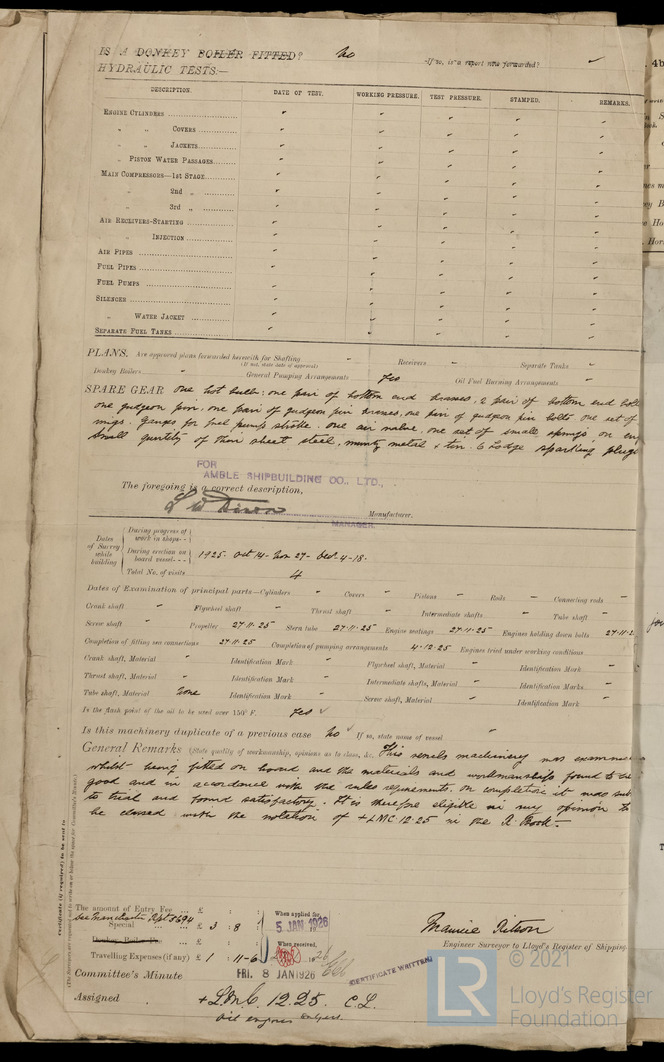 IS A DONKEY BOILER FITTED? No If so, is a report now forwarded?
HYDRAULIC TESTS:—
DESCRIPTION. DATE OF TEST. WORKING PRESSURE. TEST PRESSURE. STAMPED. REMARKS.
ENGINE CYLINDERS
" " COVERS
" " JACKETS
" PISTON WATER PASSAGES
MAIN COMPRESSORS—1st STAGE
" 2nd "
" 3rd "
AIR RECEIVERS-STARTING
" INJECTION
AIR PIPES
FUEL PIPES
FUEL PUMPS
SILENCER
" WATER JACKET
SEPARATE FUEL TANKS
PLANS. Are approved plans forwarded herewith for Shafting Receivers Separate Tanks
(If not, state date of approval)
Donkey Boilers General Pumping Arrangements Yes Oil Fuel Burning Arrangements
SPARE GEAR One hot bulb; one pair of bottom end brasses, 2 pair of bottom end bolts
one gudgeon pin, one pair of gudgeon pin brasses, one pair of gudgeon pin bolts one set of
rings. Gauges for fuel pump stroke. one air valve, one set of small springs, on
Small quantity of thin sheet steel, muntz metal & tin. 6 Lodge sparking plugs
FOR
AMBLE SHIPBUILDING CO., LTD.,
The foregoing is a correct description,
Manufacturer.
MANAGER.
Dates of Survey while building
During progress of work in shops
During erection on board vessel 1925. Oct 14 - Nov 27 - Dec. 4-18.
Total No. of visits 4
Dates of Examination of principal parts—Cylinders Covers Pistons Rods Connecting rods
Crank shaft Flywheel shaft Thrust shaft Intermediate shafts Tube shaft
Screw shaft Propeller 27·11·25 Stern tube 27·11·25 Engine seatings 27·11·25 Engines holding down bolts 27·11·2
Completion of fitting sea connections 27·11·25 Completion of pumping arrangements 4·12·25 Engines tried under working conditions
Crank shaft, Material Identification Mark Flywheel shaft, Material Identification Mark
Thrust shaft, Material Identification Mark Intermediate shafts, Material Identification Marks
Tube shaft, Material None Identification Mark Screw shaft, Material Identification Mark
Is the flash point of the oil to be used over 150° F. Yes
Is this machinery duplicate of a previous case No If so, state name of vessel
General Remarks (State quality of workmanship, opinions as to class, &c. This vessels machinery was examined
whilst being fitted on board and the materials and workmanship found to be
good and in accordance with the rules requirements. On completion it was sub
to trial and found satisfactory. It is therefore eligible in my opinion to
be classed with the notation of +LMC 12·25 in the R. Book.—
The amount of Entry Fee ... £ : : When applied for,
See Manchester Rpt 5694
Special ... £ 3 : 8 : 5 JAN 1926
Donkey Boiler Fee ... £ : : When received,
Travelling Expenses (if any) £ 1 : 11-6
Maurice Ritson
Engineer Surveyor to Lloyd's Register of Shipping.
Committee's Minute FRI. 8 JAN 1926
CERTIFICATE WRITTEN
Assigned +LMC. 12.25. C.L.
Oil engines
LR
© 2021
Lloyd's Register
Foundation